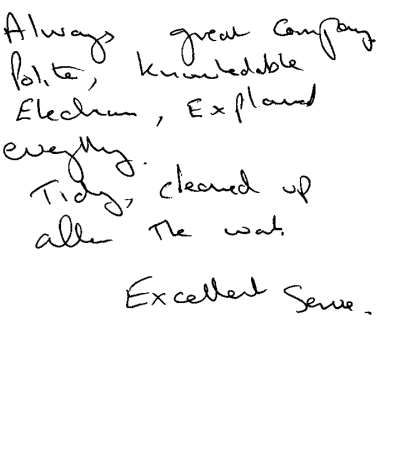 Always great company
Polite, knowledable
Electrician, Explained
everything.
Tidy, cleaned up
after the work.
Excellent Service.